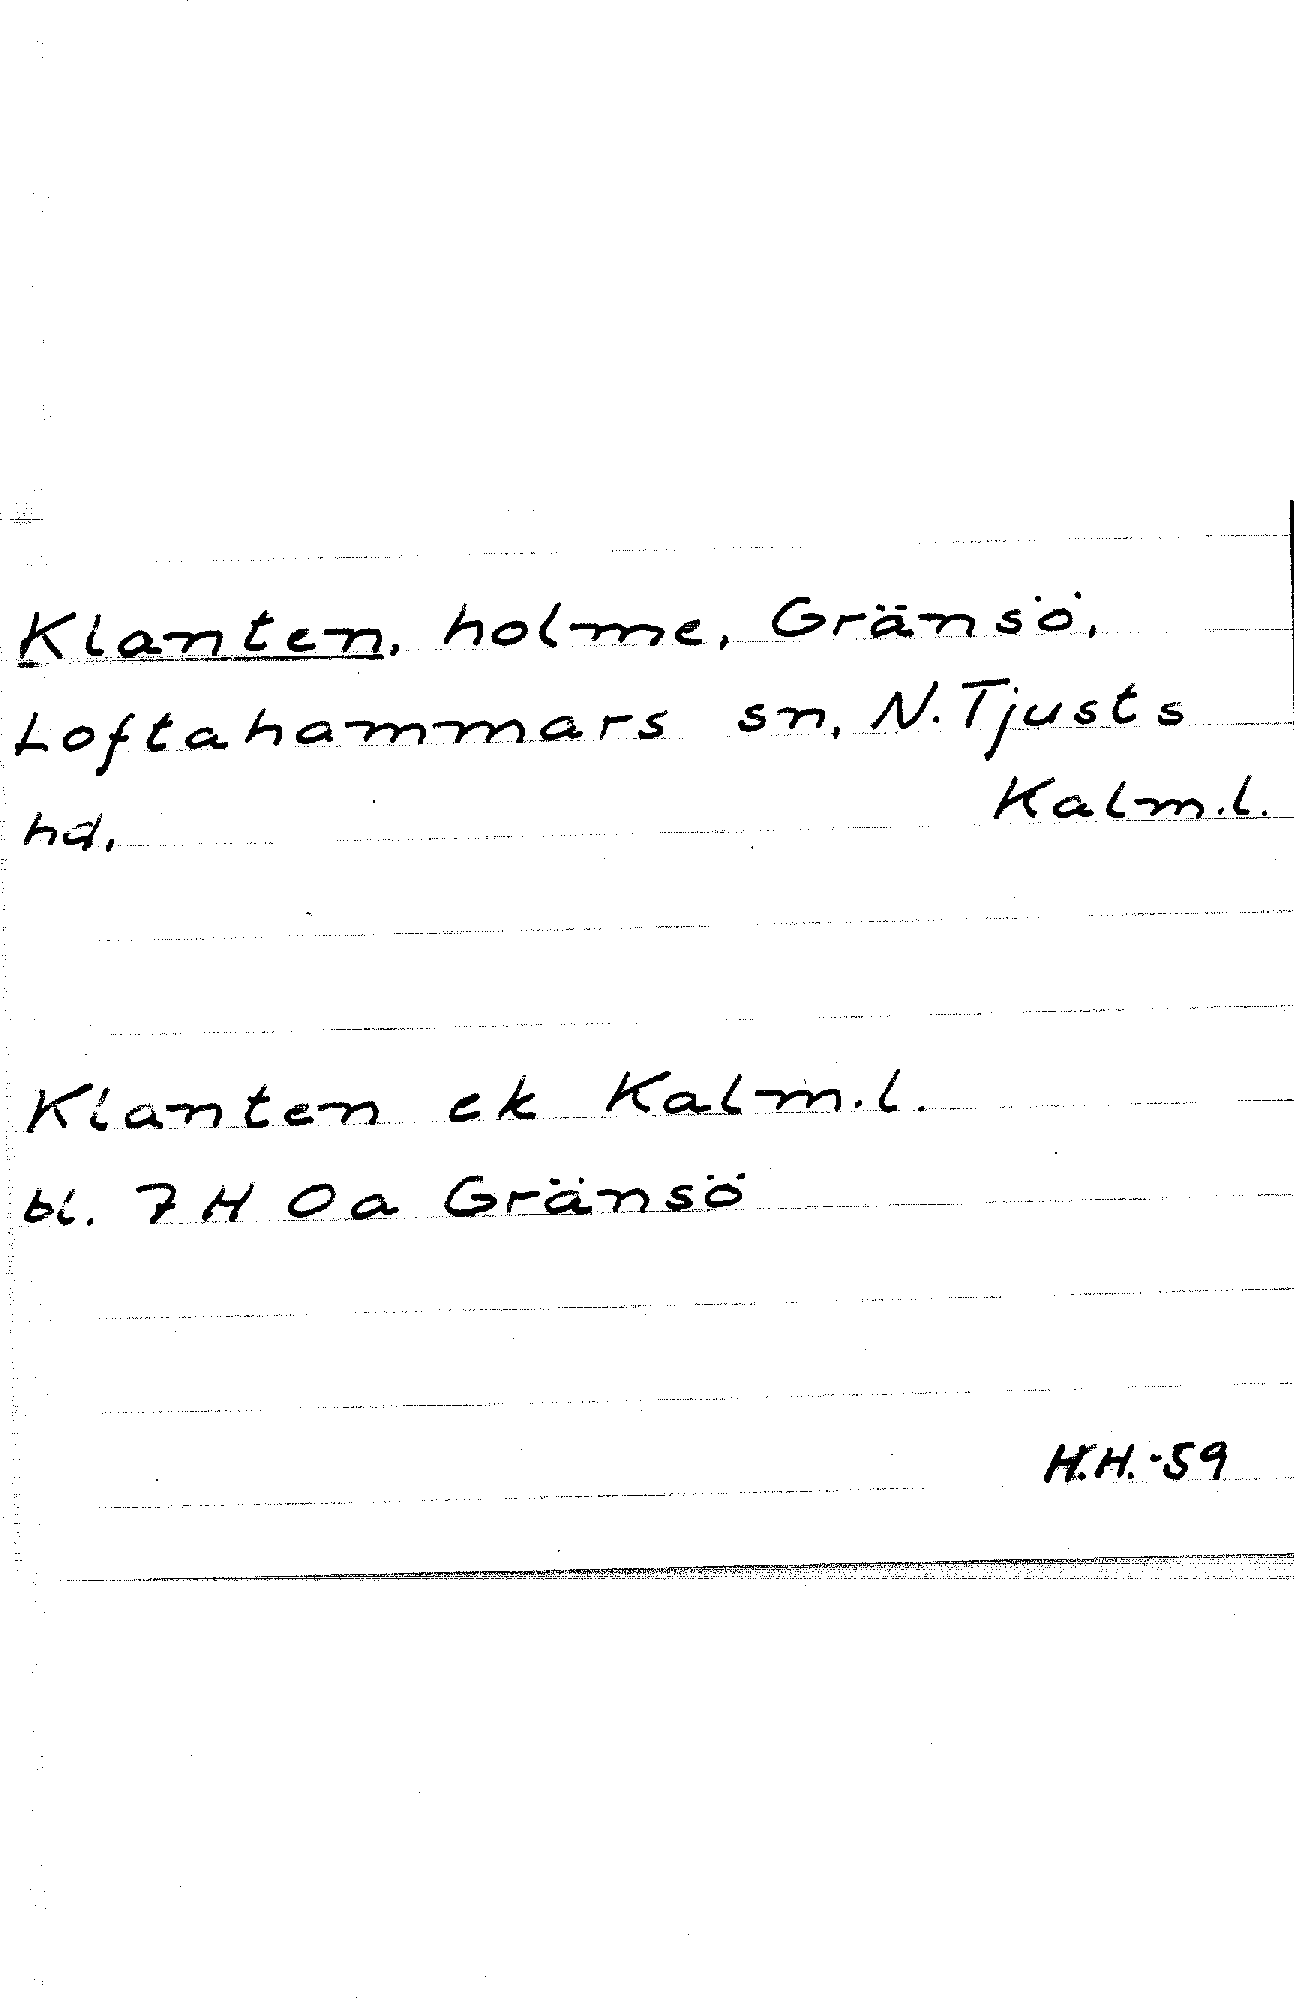 Klanten, holme, Gränsö,
Loftahammars sn, N. Tjusts
hd. Kalm.l.
Klanten ek Kalm.l.
bl. 7 H 0a Gränsö
H.H. -59